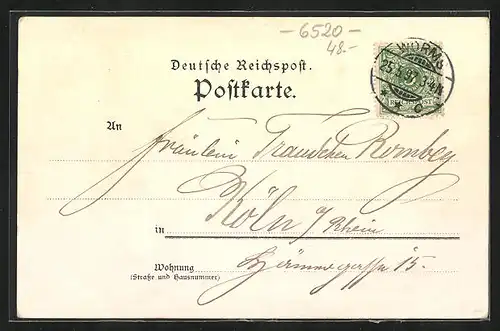 -6520-
48.-
WORMS
25.5.97. 3-4N.
* c *
REICHSPOST
Deutsche Reichspost.
Postkarte.
An
Fräulein Romberg
Köln a/Rhein
in
Wohnung 15.
(Straße und Hausnummer)